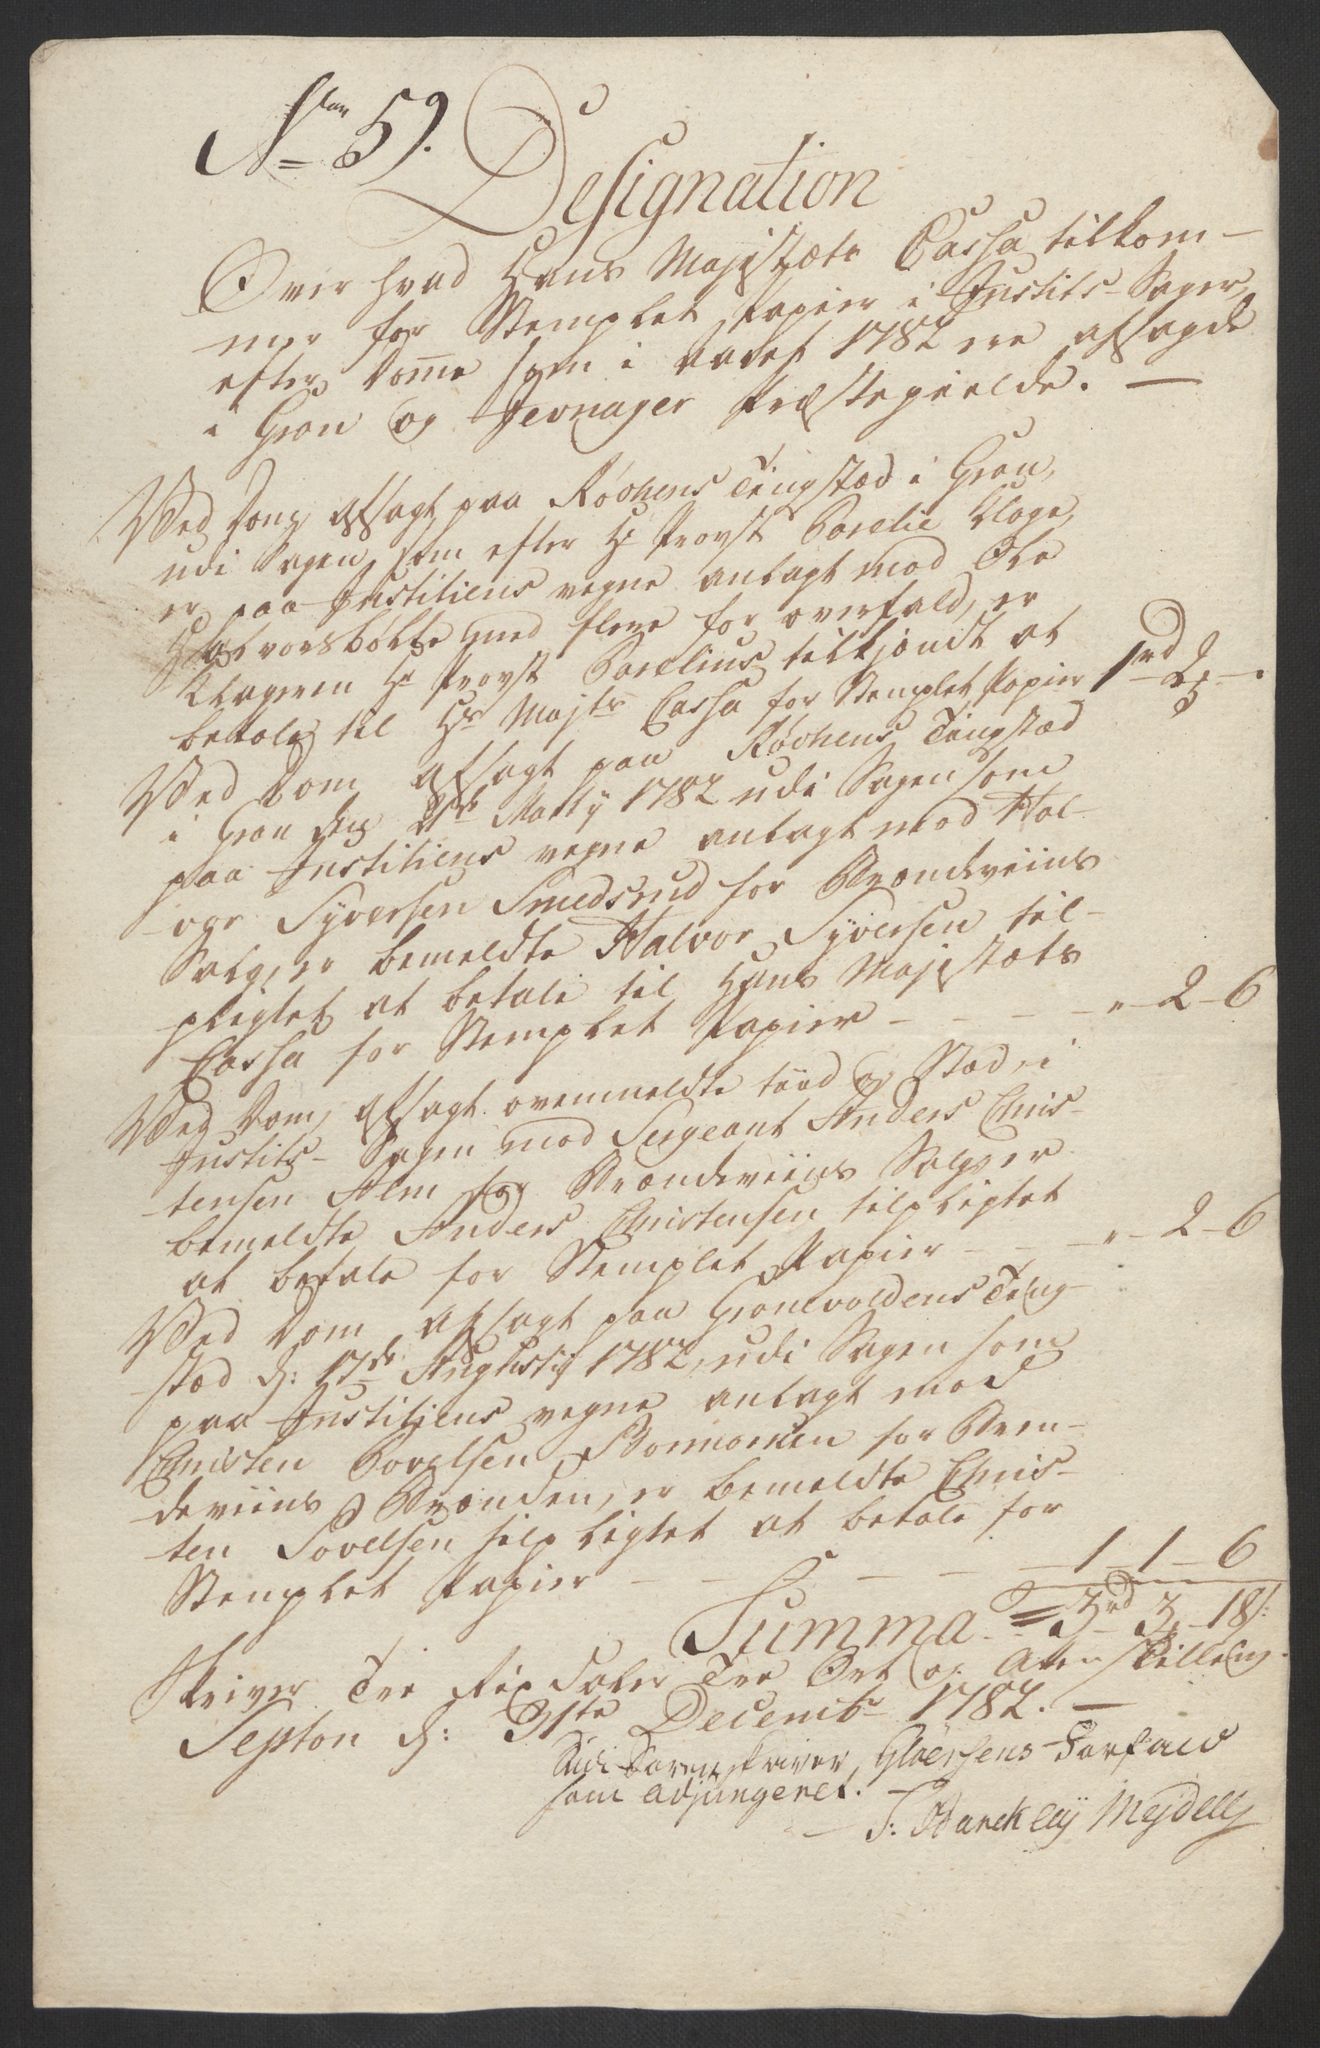 No 59.
Designation
Over hvad Hans Majestæts Cassa tilkom-
mer for Stemplet Papier i Justits-Sager,
efter Domme som i Aaret 1782 ere afsagde
i Gran og Jevnager Præstegield. —
Ved Dom afsagt paa Røøhens Tingstæd i Gran,
udi Sagen som efter Hr Provst Borelii Klage,
er paa Justitiens vegne anlagt mod Ole
Halvorsbøtte med flere for overfald, er
Klageren Hr Provst Borelius tilkjendt at
betale til Hs Majts Cassa for Stemplet Papier 1rd 2 -
Ved Dom afsagt paa Røøhens Tingstæd
i Gran den Martij 1782 udi Sagen som
paa Justitiens vegne anlagt mod Hal-
vor Syversen Smedsrud for Brændeviins
Salg, er bemeldte Halvor Syversen til-
pligtet at betale til Hans Majestæts
Cassa for Stemplet Papier - - - - " - 2 - 6
Ved Dom, afsagt ovenmeldte tiid og Stæd, i
Justits-Sagen mod Sergeant Anders Chris-
tensen Alm for Brændeviins Salg, er
bemeldte Anders Christensen tilpligtet
at betale for Stemplet Papier - - - " - 2 - 6
Ved Dom afsagt paa Granevoldens Ting-
stæd d: 17de Augusti 1782, udi Sagen som
paa Justitiens vegne anlagt mod
Christen Povelsen for Bren-
deviins Brænden, er bemeldte Chris-
ten Povelsen tilpligtet at betale for
Stemplet Papier - - - - - 1 - 1 - 6
Summa = 3rd 3 - 18s:
Skriver Tre Rixdaler Tre Ort og Atten Skilling.
Septon d: 31te Decembr 1782. —
Udi Sorenskriver Gløersens Forfald
som adjungeret.
— T: Barclaij Mejdell